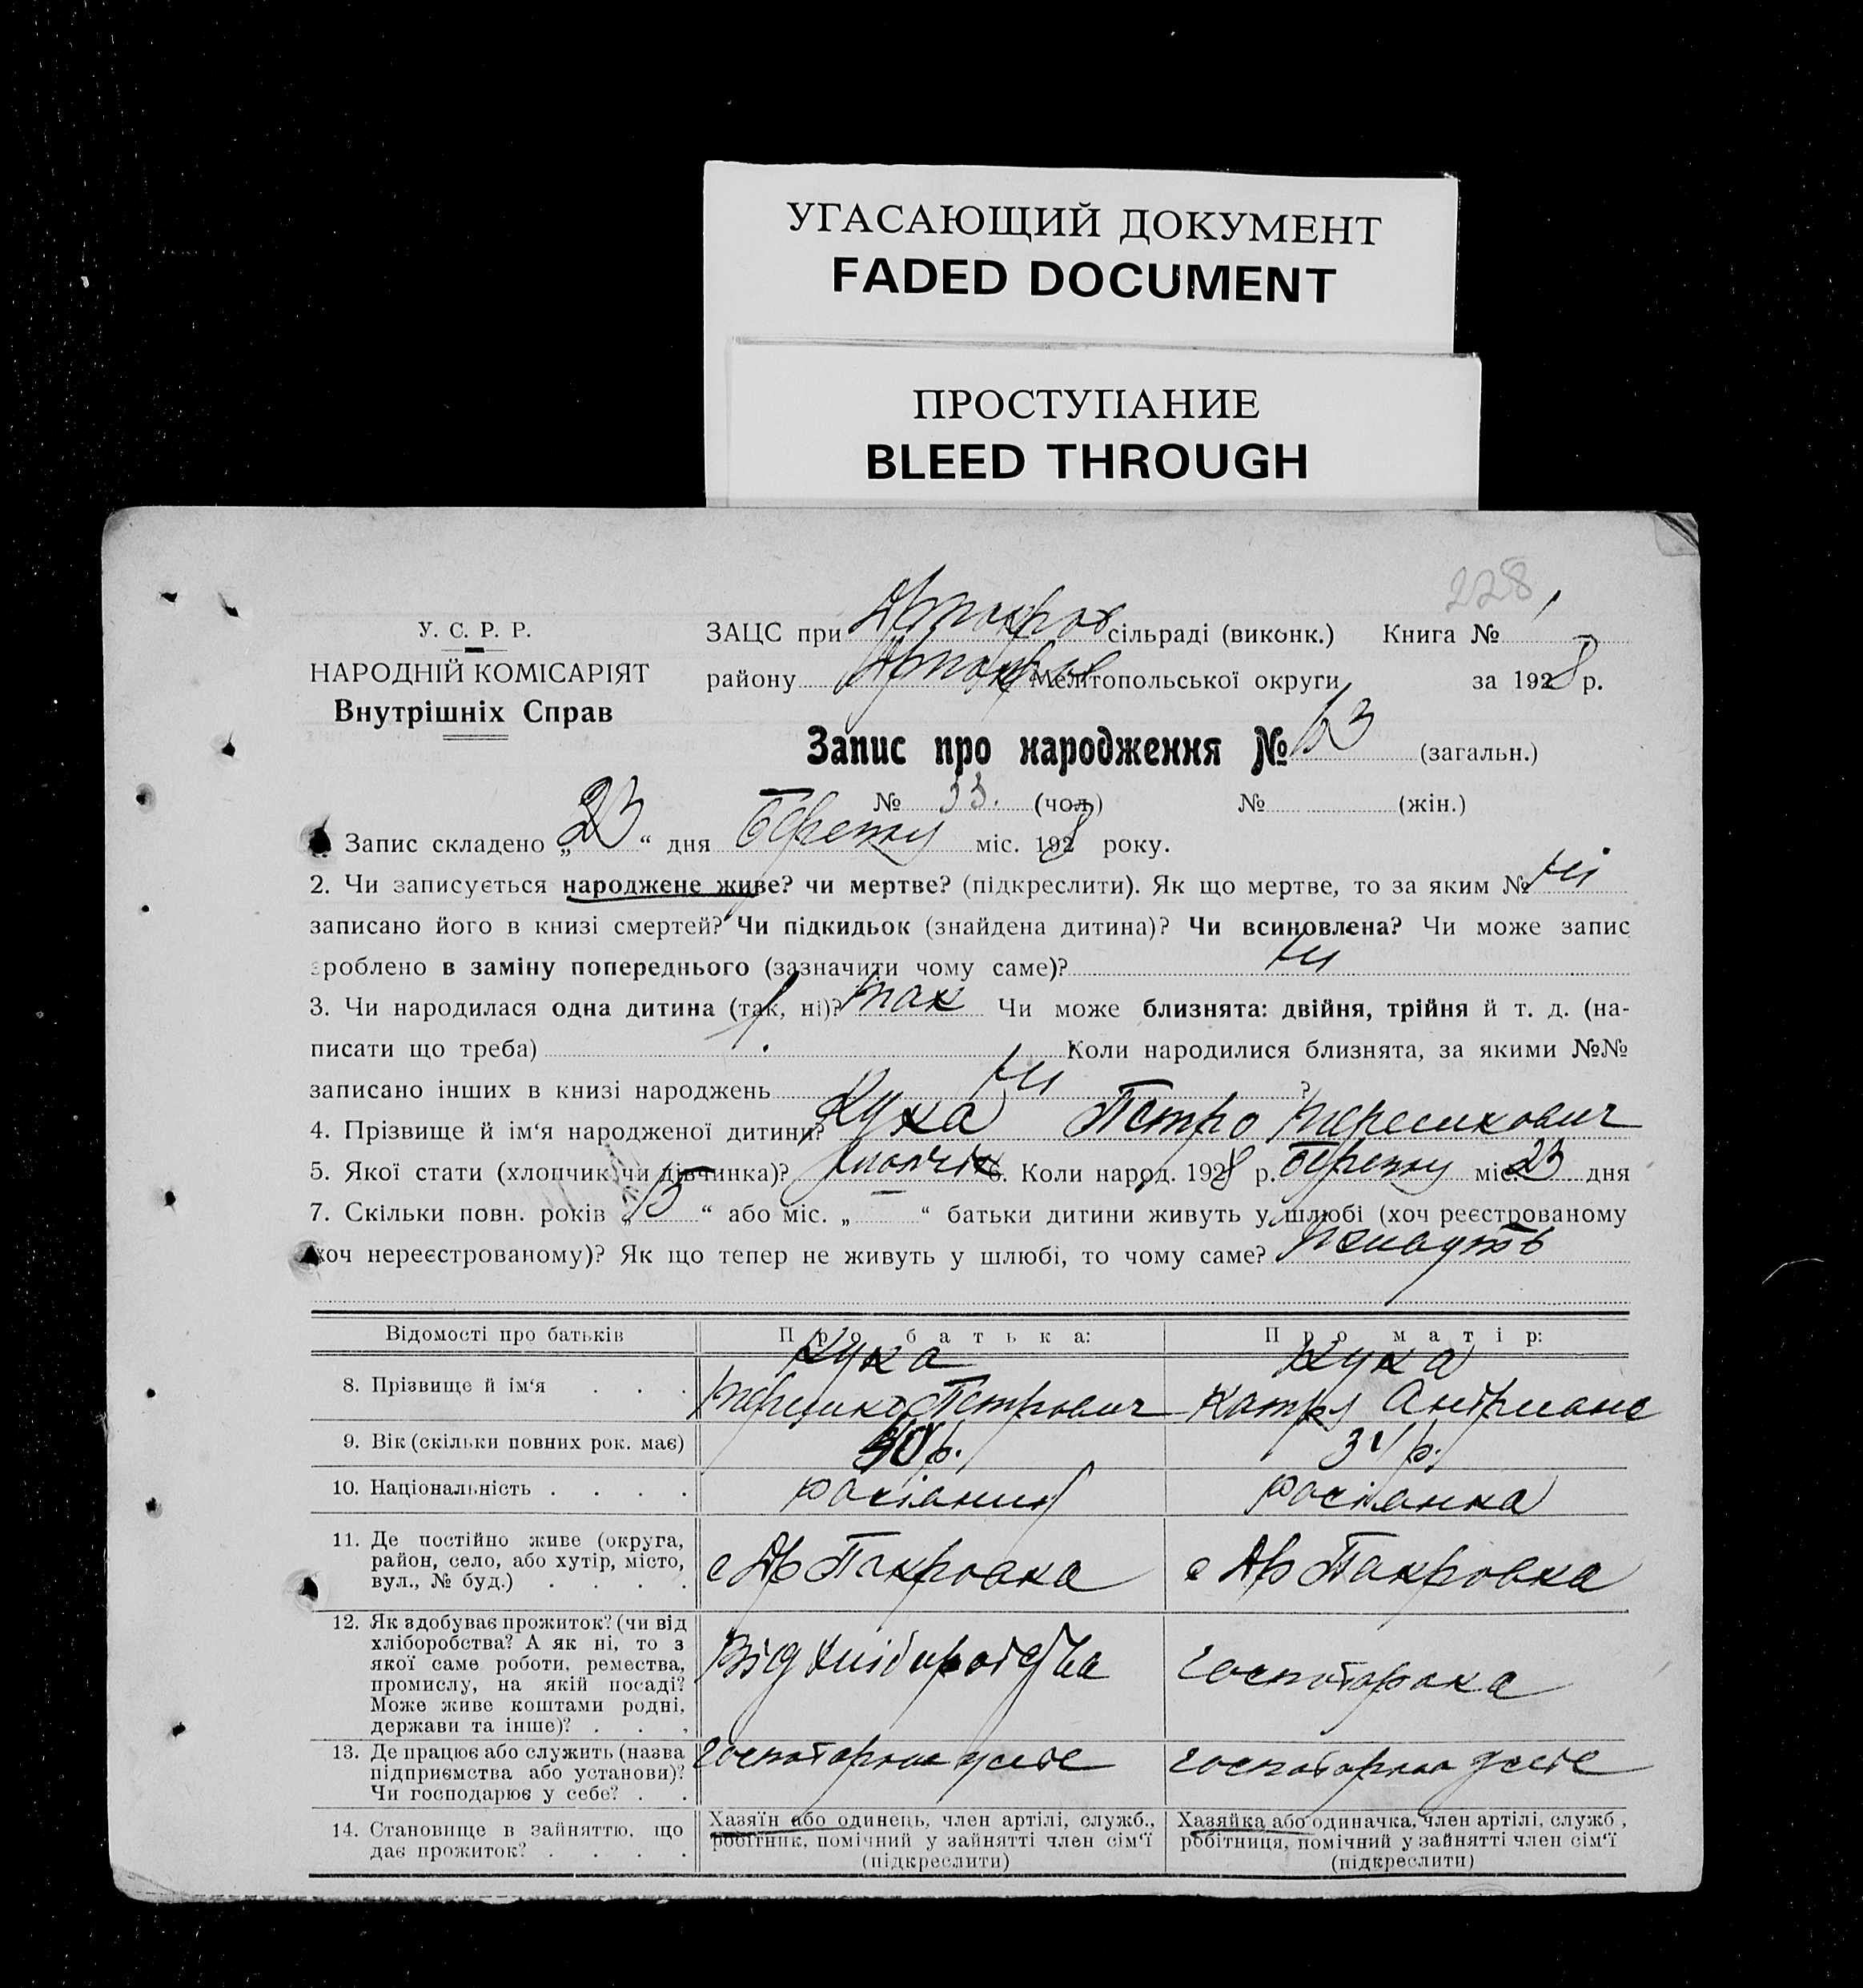 УГАСАЮЩИЙ ДОКУМЕНТ
FADED DOCUMENT
ПРОСТУПАНИЕ
BLEED THROUGH
228
У. С. Р. Р.
НАРОДНІЙ КОМІСАРІЯТ
Внутрішніх Справ
ЗАЦС при сільраді (виконк.) Книга №
району Мелітопольської округи за 1928 р.
Запис про народження № 63 (загальн.)
№ 33. (чол.) № (жін.)
Запис складено „23“ дня міс. 1928 року.
2. Чи записується народжене живе? чи мертве? (підкреслити). Як що мертве, то за яким № ні
записано його в книзі смертей? Чи підкидьок (знайдена дитина)? Чи всиновлена? Чи може запис
зроблено в заміну попереднього (зазначити чому саме)? ні
3. Чи народилася одна дитина (так, ні)? так Чи може близнята: двійня, трійня й т. д. (на-
писати що треба) Коли народилися близнята, за якими №№
записано інших в книзі народжень ні ?
4. Прізвище й ім‘я народженої дитини? Кука Петро
5. Якої стати (хлопчик чи дівчинка)? 6. Коли народ. 1928 р. міс. 23 дня
7. Скільки повн. років „ “ або міс. „ “ батьки дитини живуть у шлюбі (хоч реєстрованому
хоч нереєстрованому)? Як що тепер не живуть у шлюбі, то чому саме?
Відомості про батьків
Про батька:
Про матір:
8. Прізвище й ім‘я . . .
Кука
Петрович
Кука
Катря
9. Вік (скільки повних рок. має)
р.
31 р.
10. Національність . . . .
росіянин
росіянка
11. Де постійно живе (округа,
район, село, або хутір, місто,
вул., № буд.) . . . .
с Др Пакровка
с Др Пакровка
12. Як здобуває прожиток? (чи від
хліборобства? А як ні, то з
якої саме роботи, ремества,
промислу, на якій посаді?
Може живе коштами родні,
держави та інше)? . . .
Від
13. Де працює або служить (назва
підприємства або установи)?
Чи господарює у себе? . .
14. Становище в зайняттю, що
дає прожиток? . . . .
Хазяїн або одинець, член артілі, служб.,
робітник, помічний у зайнятті член сім‘ї
(підкреслити)
Хазяйка або одиначка, член артілі, служб.,
робітниця, помічний у зайнятті член сім‘ї
(підкреслити)